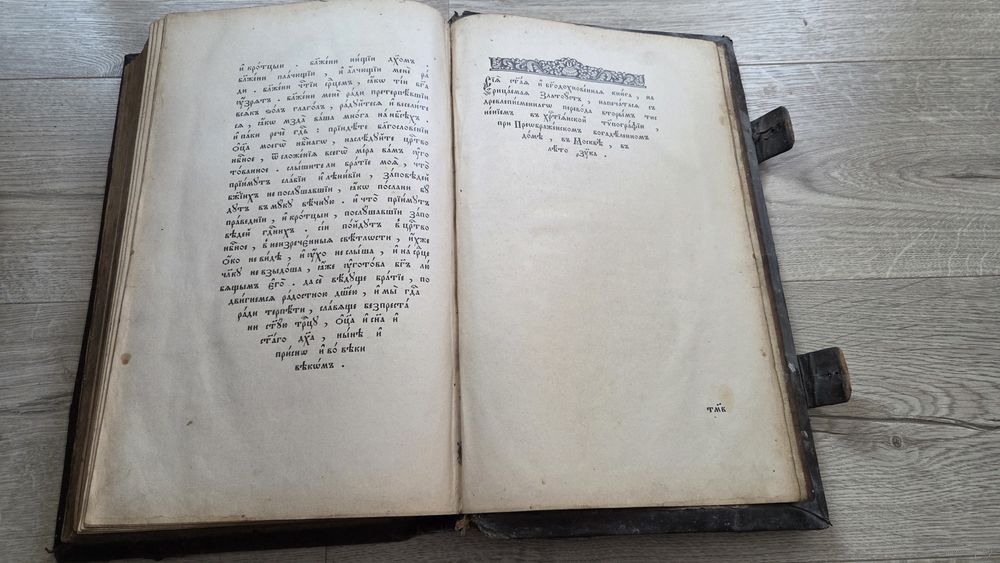 и҆ кро́тцыи . бл҃же́ни ни́щїи дх҃омъ
бл҃же́ни пла́чющїи , и҆ а҆́лчющїи менѐ ра́
ди . бл҃же́ни чи́стїи ср҃цемъ , ꙗ҆́кѡ ті́и бг҃а
ѹ҆́зрѧтъ . бл҃же́ни менѐ ра́ди претерпѣ́вшїи
всѧ́къ ѕо́лъ глаго́лъ , ра́дѹйтесѧ и҆ весели́те
сѧ , ꙗ҆́кѡ мзда̀ ва́ша мно́га на нб҃сѣ́хъ
и҆ па́ки речѐ гд҃ь : прїиди́те благослове́нїи
ѻ҆ц҃а̀ моегѡ̀ нб҃наго , наслѣ́дѹйте цр҃тво
нб҃ное , ѿ сложе́нїѧ всегѡ̀ ми́ра ва́мъ ѹ҆гот
о́ванное . слы́шители бра́тїе моѧ̀ , что̀
прїи́мѹтъ сла́бїи и҆ лѣни́вїи , за́повѣдей
бж҃їихъ не послѹ́шавшїи , ꙗ҆́кѡ по́слани бѹ́
дѹтъ въ мѹ́кѹ вѣ́чнѹю . и҆ что̀ прїи́мѹтъ
пра́веднїи , и҆ кро́тцыи , послѹ́шавшїи за́по
вѣдей гд҃нихъ . сі́и по́йдѹтъ в̾ цр҃тво
нб҃ное , в неизрече́нныѧ свѣ́тлости , и҆́хже
ѻ҆́ко не ви́дѣ , и҆ ѹ҆́хо не слы́ша , и҆ на ср҃це
чл҃кѹ не взыдо́ша , ꙗ҆́же ѹ҆гото́ва бг҃ъ лю́
бѧщымъ є҆го̀ . да сѐ вѣ́дѹще бра́тїе , по
дви́гнемсѧ ра́достною дш҃ею , и҆ мы̀ гд҃а
ра́ди терпѣ́ти , сла́вѧще безпреста
ни ст҃ѹю тр҃цѹ , ѻ҆ц҃а̀ и҆ сн҃а и҆
ст҃а́го дх҃а , ны́нѣ и҆
при́снѡ и҆ во́ вѣки
вѣкѡ́мъ .
Сїѧ̀ ст҃а́ѧ и҆ бг҃одохнове́ннаѧ кни́га , на
рица́емаѧ Златоѹ́стъ , напеча́тасѧ съ
древлепи́сменнагѡ перево́да вторы́мъ тис
не́нїемъ въ хр҃тїа́нской тѵпогра́фїи ,
при Преѡбра́женскомъ богадѣ́ленномъ
до́мѣ , въ Москвѣ̀ , въ
лѣ́то ҂зѹ҃в .
тм҃в